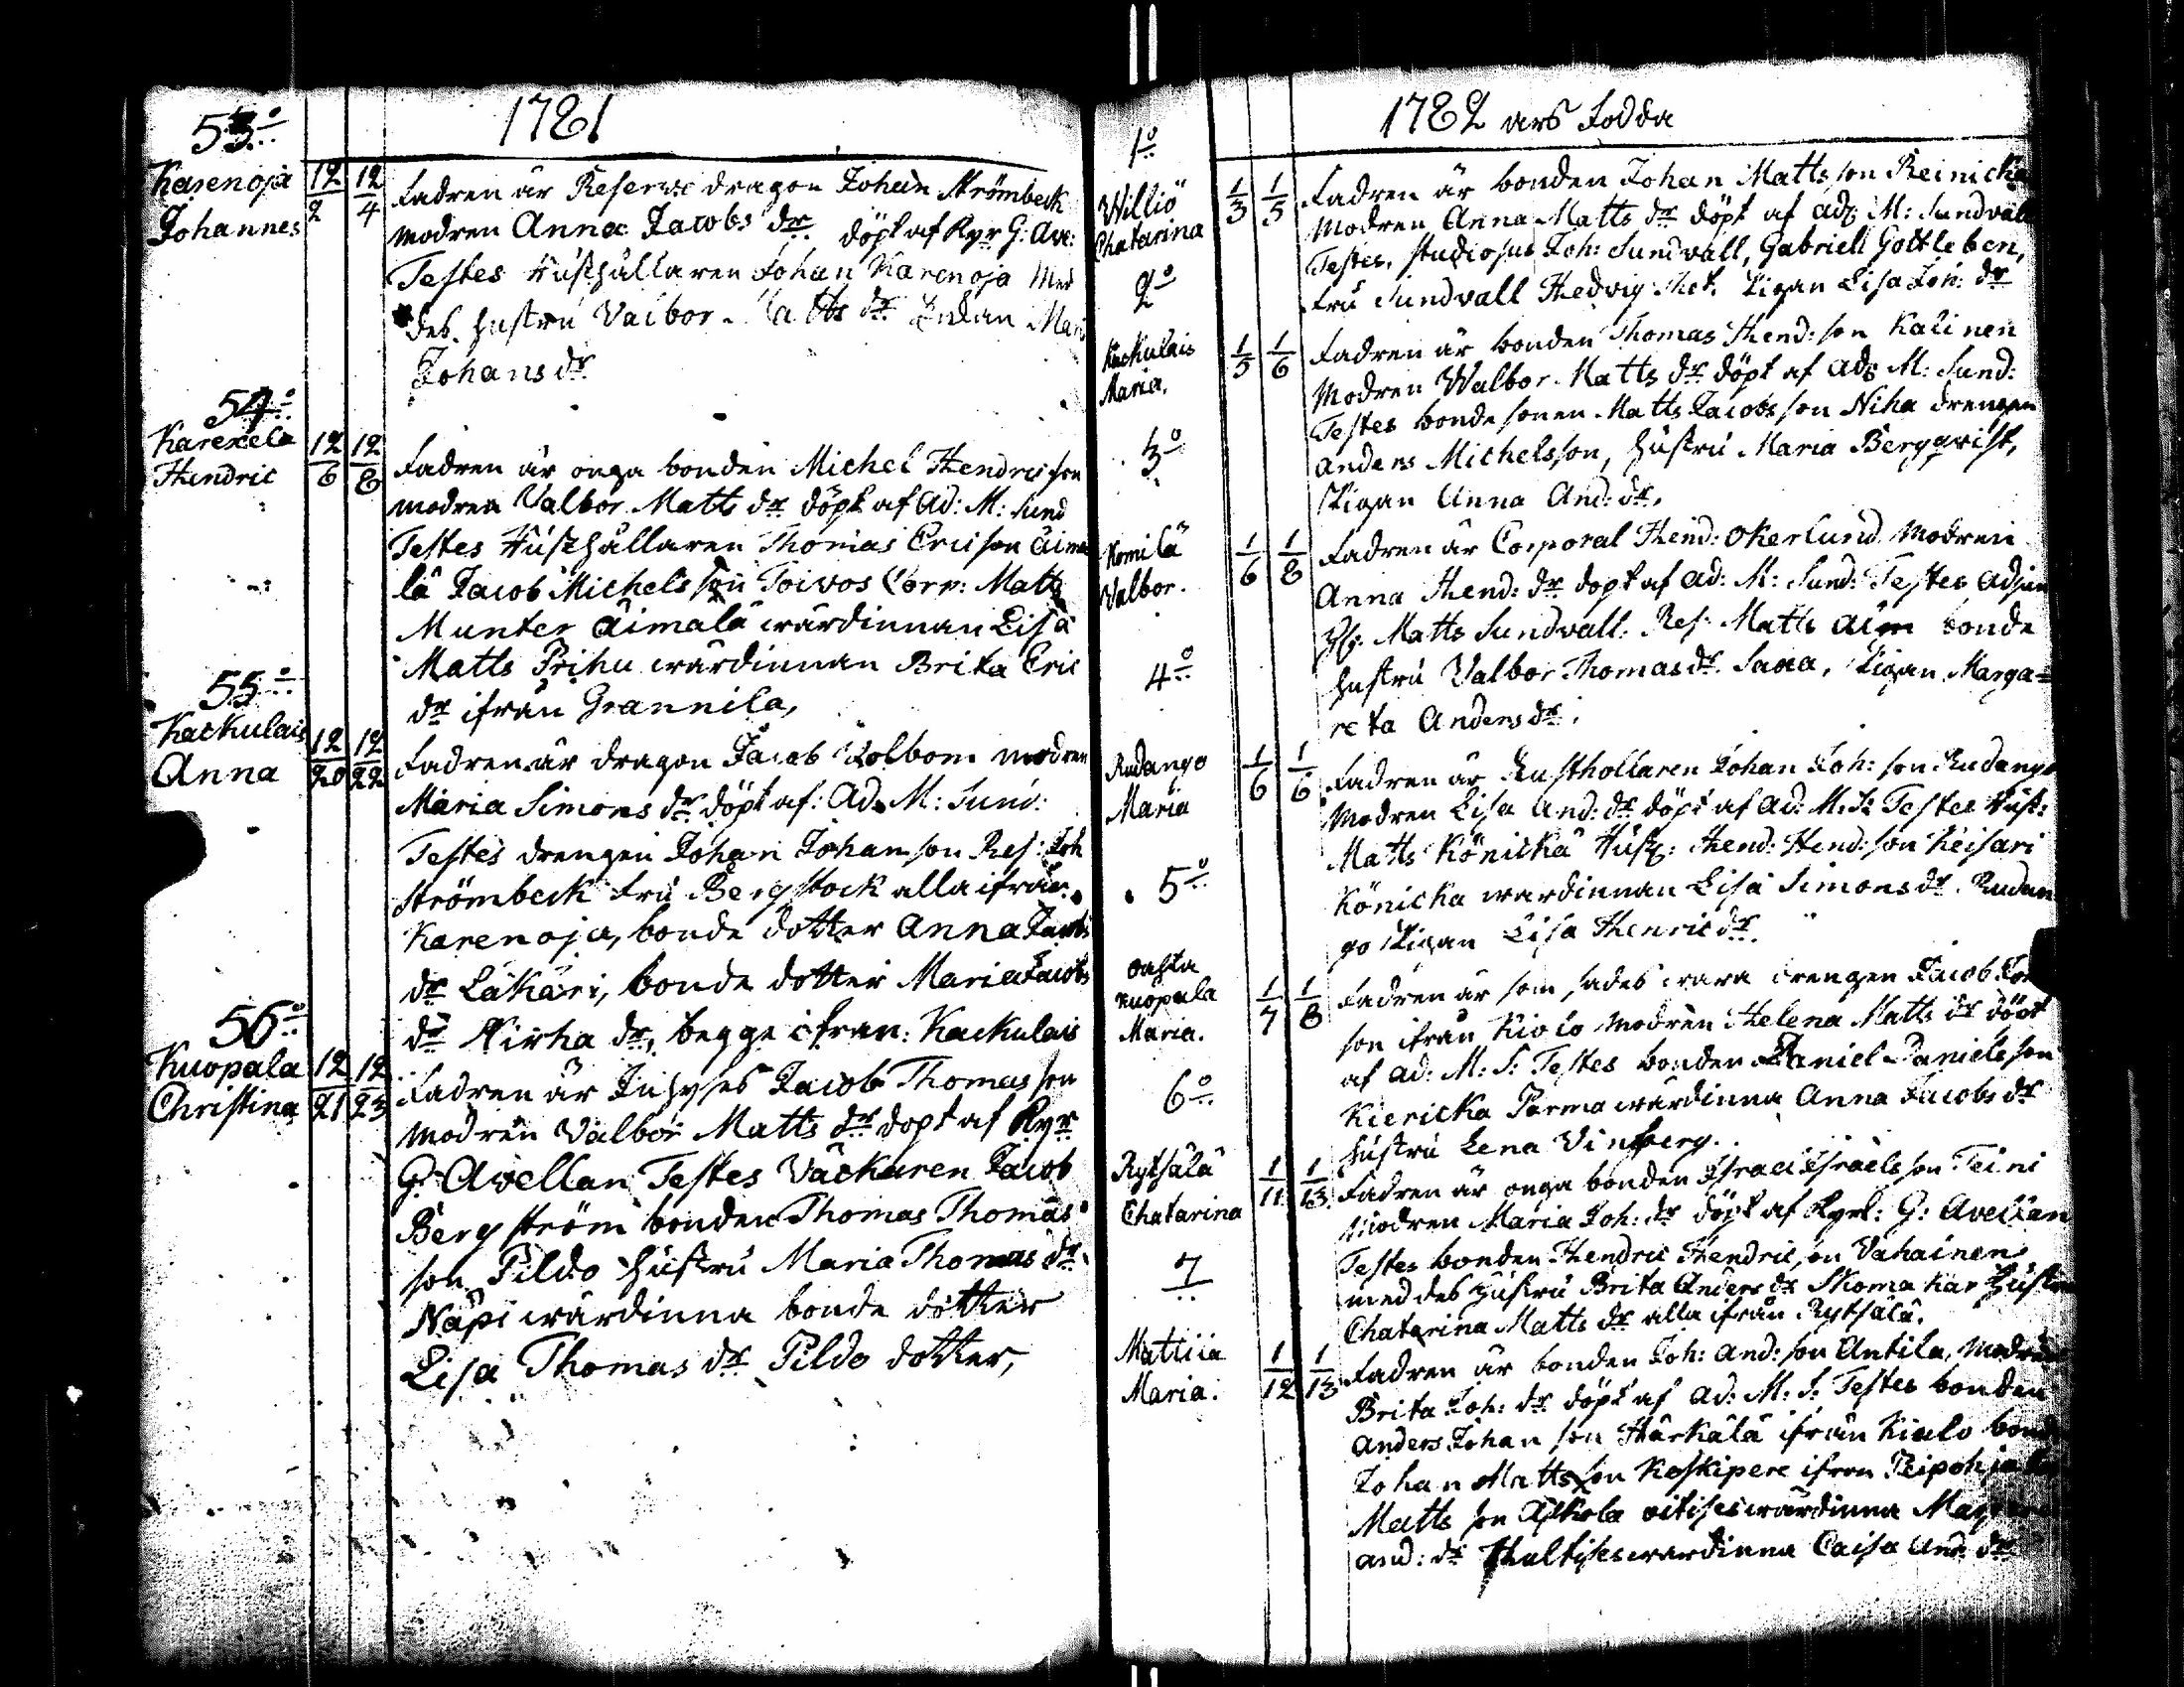 1781
53º
Karenoja
Johannes
12/2 12/4
Fadren är Reserve dragon Johan Strömbeck
modren Anna Jacobs dr döpt af Kyr G: Ave:
Testes Husthållaren Johan Karenoja Med
des hustru Valbor Matts dr Enkan Mari
Johans dr
54º
Karexela
Hendric
12/6 12/8
Fadren är onga bonden Michel Hendricson
modren Valbor Matts dr döpt af Ad: M: Sund
Testes Husthållaren Thomas Ericson Äima
lä Jacob Michelsson Toivos Corp: Matts
Munter Äimalä wärdinnan Lisa
Matts Prihu wärdinnan Brita Eric
dr ifrån Grannila,
55º
Kackulais
Anna
12/20 12/22
Fadren är dragon Jacob Kolbom modren
Maria Simons dr döpt af: Ad. M: Sund:
Testes drengen Johan Johansson Res: Joh
Strömbeck fru Bergstock alla ifrån
Karenoja, bonde dotter Anna Jacobs
dr Läkäri, bonde dotter Maria Jacobs
dr Nirha dr, begge ifran: Kackulais
56º
Kuopala
Christina
12/21 12/23
Fadren är Inhyses Jacob Thomasson
modren Valbor Matts dr dopt af Kyr
G: Avellan Testes Väckaren Jacob
Bergström bonden Thomas Thomas
son Pildo hustru Maria Thomas dr
Näpi wärdinna bonde dotter
Lisa Thomas dr Pildo dotter,
1782 ars Fodda
1º
Williö
Chatarina
1/3 1/5
Fadren är bonden Johan Mattsson Reinicka
Modren Anna Matts dr döpt af adj M: Sundvall
Testes, studiosus Joh: Sundvall, Gabriell Gottleben,
Fru Sundvall Hedvig Pigan Lisa Joh: dr
2º
Kackulais
Maria.
1/5 1/6
Fadren är bonden Thomas Hend: son Kalinen
Modren Walbor Matts dr döpt af adj M: Sund:
Testes bonde sonen Matts Jacobsson Niha drengen
Anders Michelsson, hustru Maria Bergqvist,
Pigan Anna And: dr.
3º
Komilä
Valbor.
1/6 1/8
Fadren är Corporal Hend: Okerlund Modren
Anna Hend: dr dopt af ad: M: Sund: Testes Adjun
Matts Sundvall. Res: Matts Äim bonde
hustru Valbor Thomas dr. Saxa, Pigan Marga=
reta Anders dr.
4º
Rudango
Maria
1/6 1/6
Fadren är Rusthollaren Johan Joh: son Rudango
Modren Lisa And: dr döpt af ad: M: S: Testes Hust:
Matts Könickä Hust: Hend: Hend: son Keisari
Könicka wardinnan Lisa Simons dr. Rudan
go Pigan Lisa Henric dr.
5º
Kuopala
Maria.
1/7 1/8
Fadren är som sades wara drengen Jacob
son ifrån Kiolo Modren Helena Matts dr döpt
af ad: M: S: Testes bonden Daniel Danielsson
Kiericka Parma wärdinna Anna Jacobs dr
hustru Lena Vinberg.
6º
Rytsälä
Chatarina
1/11 1/13
Fadren är onga bonden Israel Israelsson Teini
Modren Maria Joh: dr döpt af Kyrk: G: Avellan
Testes bonden Hendric Hendricson Vähäinen
med des hustru Brita Anders dr Skomakar Hustru
Chatarina Matts dr alla ifrån Rytsälä.
7
Matiia
Maria.
1/12 1/13
Fadren är bonden Joh: And: son Antila, Modren
Brita Joh: dr döpt af ad: M: S: Testes bonden
Anders Johan son Härkälä ifrån Kiulo bonde
Johan Mattsson Koskipere ifron Peipohja
Matts son wärdinna
and: dr wardinna Caisa And: dr